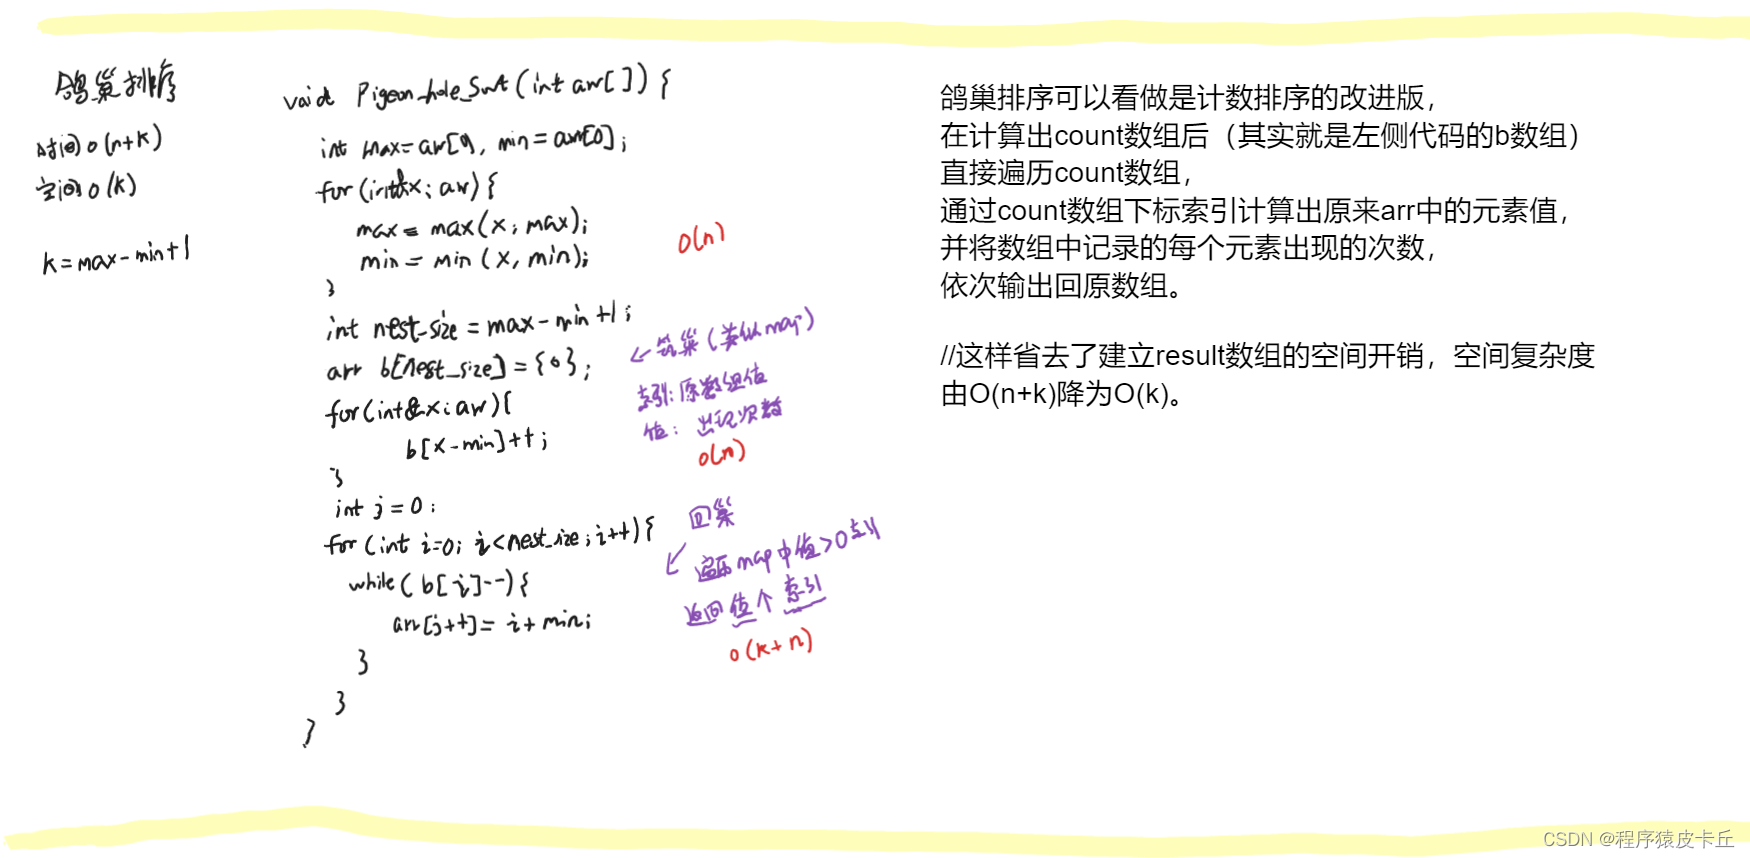 鸽巢排序
时间 O(n+k)
空间 O(k)
k=max-min+1
void Pigeon_hole_Sort(int arr[]) {
int max=arr[0], min=arr[0];
for(int&x:arr){
max = max(x, max);
min = min(x, min);
}
O(n)
int nest_size = max-min+1;
arr b[nest_size]={0};
for(int&x:arr){
b[x-min]++;
}
←筑巢(类似map)
索引:原数组值
值:出现次数
O(n)
int j=0;
for(int i=0; i<nest_size;i++){
while(b[i]--){
arr[j++]=i+min;
}
}
}
回巢
遍历map中值>0索引
返回值个索引
O(k+n)
鸽巢排序可以看做是计数排序的改进版，
在计算出count数组后（其实就是左侧代码的b数组）
直接遍历count数组，
通过count数组下标索引计算出原来arr中的元素值，
并将数组中记录的每个元素出现的次数，
依次输出回原数组。
//这样省去了建立result数组的空间开销，空间复杂度
由O(n+k)降为O(k)。
CSDN @程序猿皮卡丘